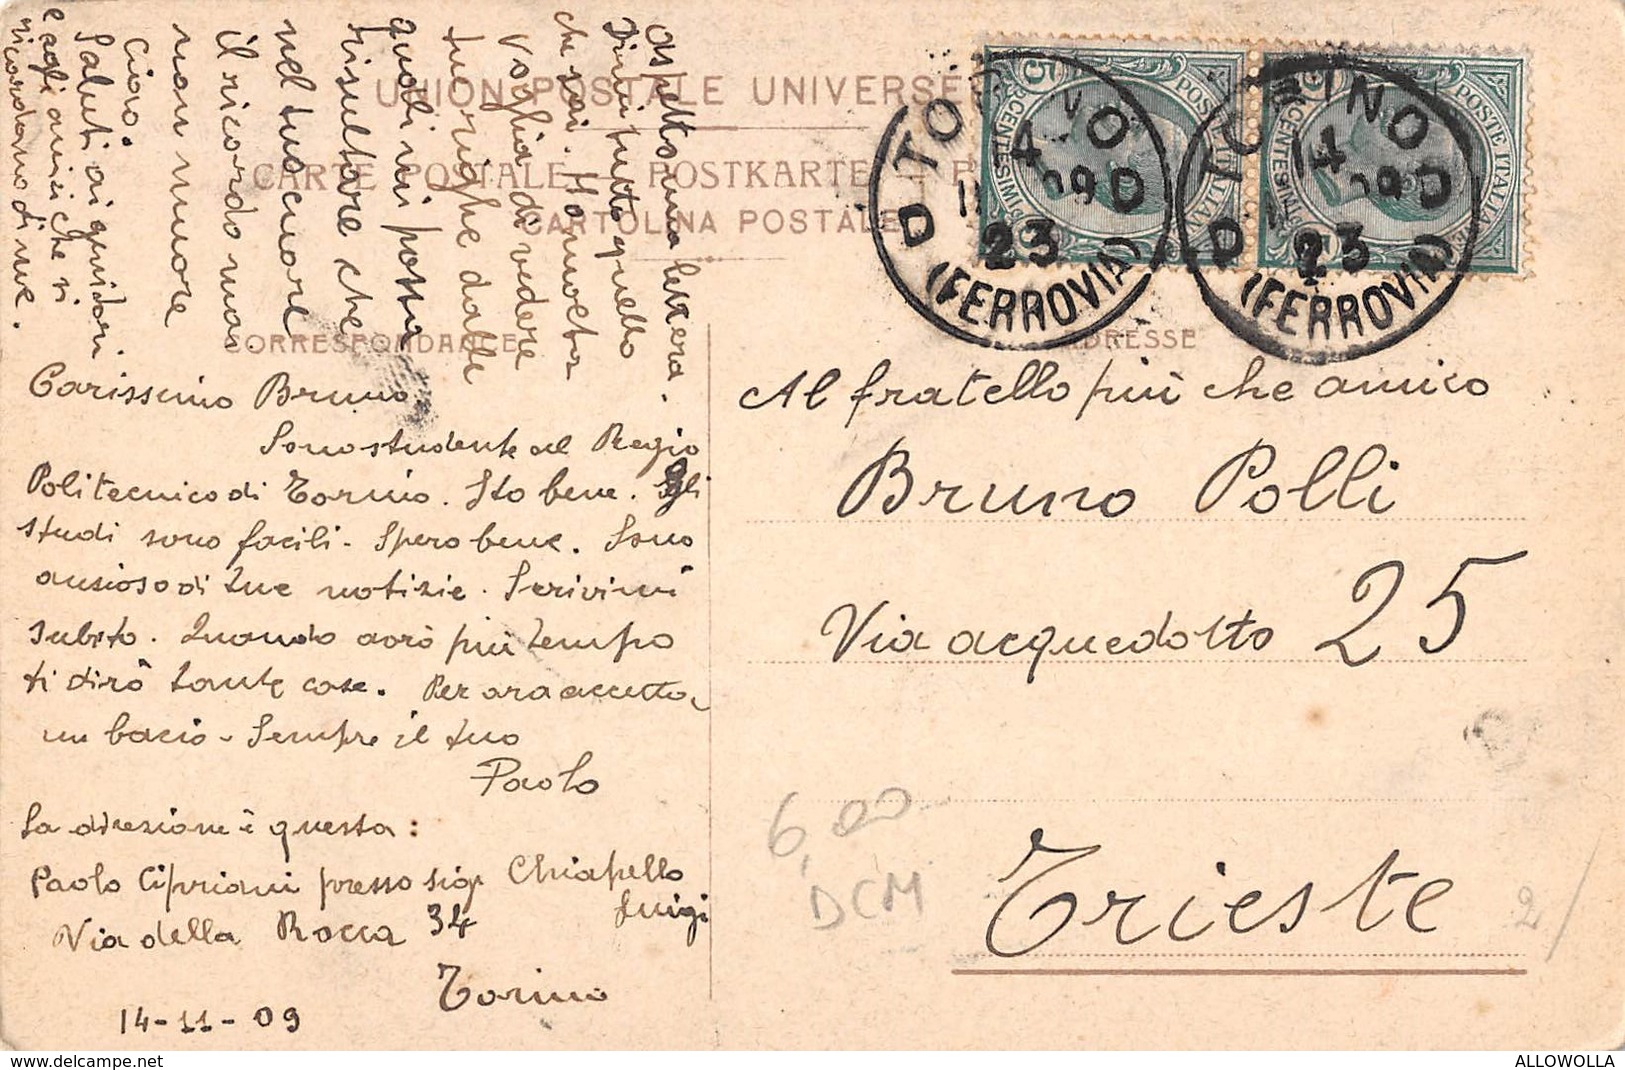 UNION POSTALE UNIVERSE
CARTE POSTALE POSTKARTE
CARTOLINA POSTALE
CORRESPONDANCE
ADRESSE
Carissimo Bruno
Sono studente al Regio
Politecnico di Torino. Sto bene. Gli
studi sono facili. Spero bene. Sono
ansioso di tue notizie. Scrivimi
subito. Quando avrò più tempo
ti dirò tante cose. Per ora accetta
un bacio. Sempre il tuo
Paolo
La direzione è questa:
Paolo Cipriani presso sig. Chiapello
Luigi
Via della Rocca 34
Torino
14-11-09
Aspetto una lettera.
Dimmi tutto quello
che sai. Ho
voglia di vedere
dalle
quali mi possa
risultare che
nel tuo cuore
il ricordo mio
non muore
Ciao.
Saluti ai genitori
e agli amici che si
ricordano di me.
Al fratello più che amico
Bruno Polli
Via acquedotto 25
Trieste
POSTE ITALIANE
CENTESIMI
5
POSTE ITALIANE
CENTESIMI
TORINO
14
09
23
(FERROVIA)
TORINO
14
09
23
(FERROVIA)
6,00
DCM
2/
delcampe.net
ALLOWOLLA